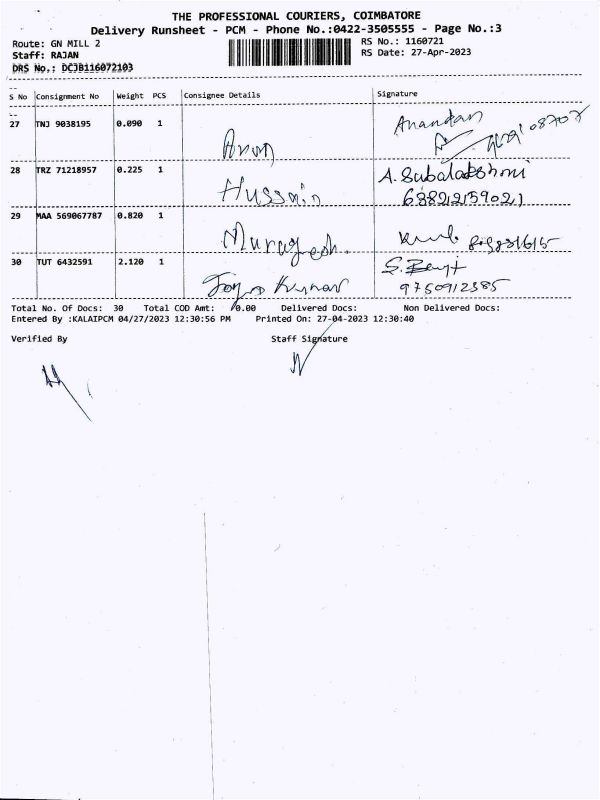 THE PROFESSIONAL COURIERS, COIMBATORE
Delivery Runsheet - PCM - Phone No.:0422-3505555 - Page No.:3
Route: GN MILL 2
RS No.: 1160721
Staff: RAJAN
RS Date: 27-Apr-2023
DRS No.: DCJB116072103
S No Consignment No Weight PCS Consignee Details Signature
27 TNJ 9038195 0.090 1 Arun Anandan
28 TRZ 71218957 0.225 1 Hussain A. Subalakshmi
29 MAA 569067787 0.820 1 Murugesh.
30 TUT 6432591 2.120 1 Kumar
9750912385
Total No. Of Docs: 30 Total COD Amt: 0.00 Delivered Docs: Non Delivered Docs:
Entered By :KALAIPCM 04/27/2023 12:30:56 PM Printed On: 27-04-2023 12:30:40
Verified By Staff Signature